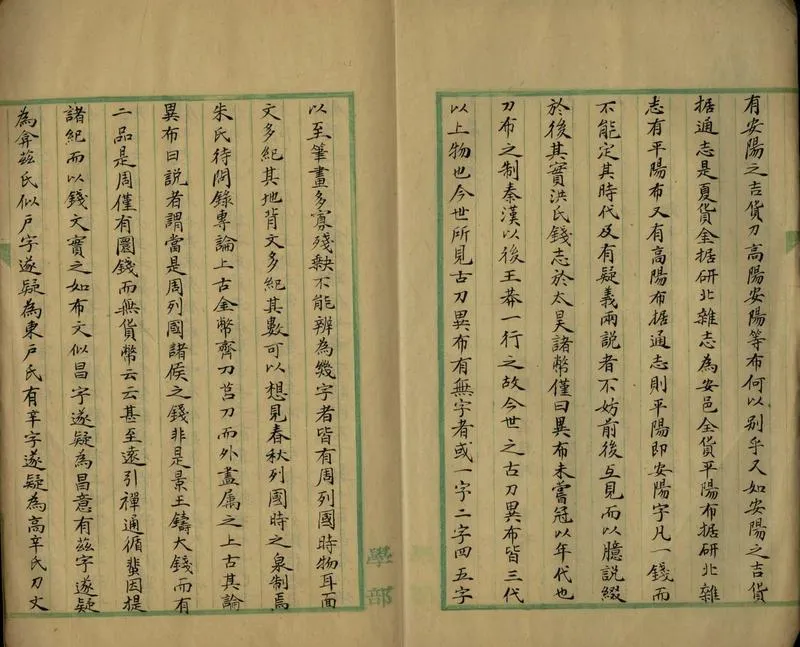 有安陽之吉貨刀高陽安陽等布何以別乎又如安陽之吉貨
据通志是夏貨金据研北雜志為安邑全貨平陽布据研北雜
志有平陽布又有高陽布据通志則平陽即安陽字凡一錢而
不能定其時代及有疑義兩說者不妨前後互見而以臆說綴
於後其實洪氏錢志於太昊諸幣僅曰異布未嘗冠以年代也
刀布之制秦漢以後王莽一行之故今世之古刀異布皆三代
以上物也今世所見古刀異布有無字者或一字二字四五字
以至筆畫多寡殘缺不能辨為幾字者皆有周列國時物耳面
文多紀其地背文多紀其數可以想見春秋列國時之泉制焉
朱氏待問錄專論上古金幣齊刀莒刀而外盡屬之上古其論
異布曰說者謂當是周列國諸侯之錢非是景王鑄大錢而有
二品是周僅有圜錢而無貨幣云云甚至遠引禪通循蜚因提
諸紀而以錢文實之如布文似昌字遂疑為昌意有茲字遂疑
為弇茲氏似戶字遂疑為東戶氏有辛字遂疑為高辛氏刀文
學部